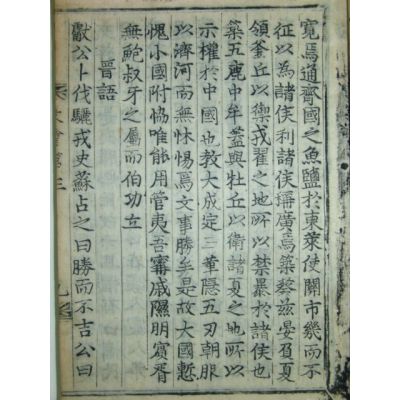 寬焉通齊國之魚鹽於東萊使關市幾而不
征以為諸侯利諸侯稱廣焉築蔡茲晏負夏
領釜丘以禦戎翟之地所以禁暴於諸侯也
築五鹿中牟蓋與牡丘以衛諸夏之地所以
示權於中國也教大成定三革隱五刃朝服
以濟河而無怵惕焉文事勝矣是故大國慙
愧小國附協唯能用管夷吾甯戚隰朋賓胥
無鮑叔牙之屬而伯功立
晉語
獻公卜伐驪戎史蘇占之曰勝而不吉公曰